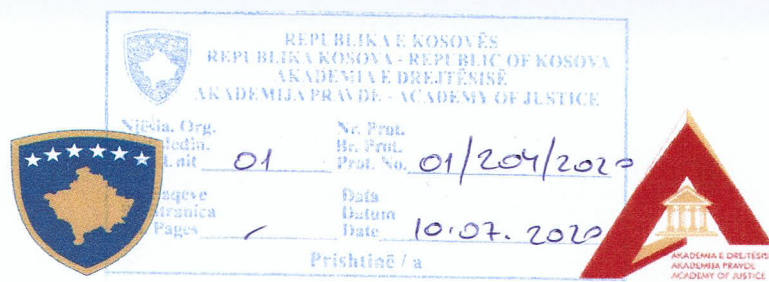 REPUBLIKA E KOSOVËS
REPUBLIKA KOSOVA - REPUBLIC OF KOSOVA
AKADEMIA E DREJTËSISË
AKADEMIJA PRAVDE - ACADEMY OF JUSTICE
Njësia. Org. Nr. Prot.
Br. Prot.
Unit 01 Prot. No. 01/204/2020
Data
stranica Datum
Pages / Date 10.07.2020
Prishtinë / a
AKADEMIA E DREJTËSISË
AKADEMIJA PRAVDE
ACADEMY OF JUSTICE